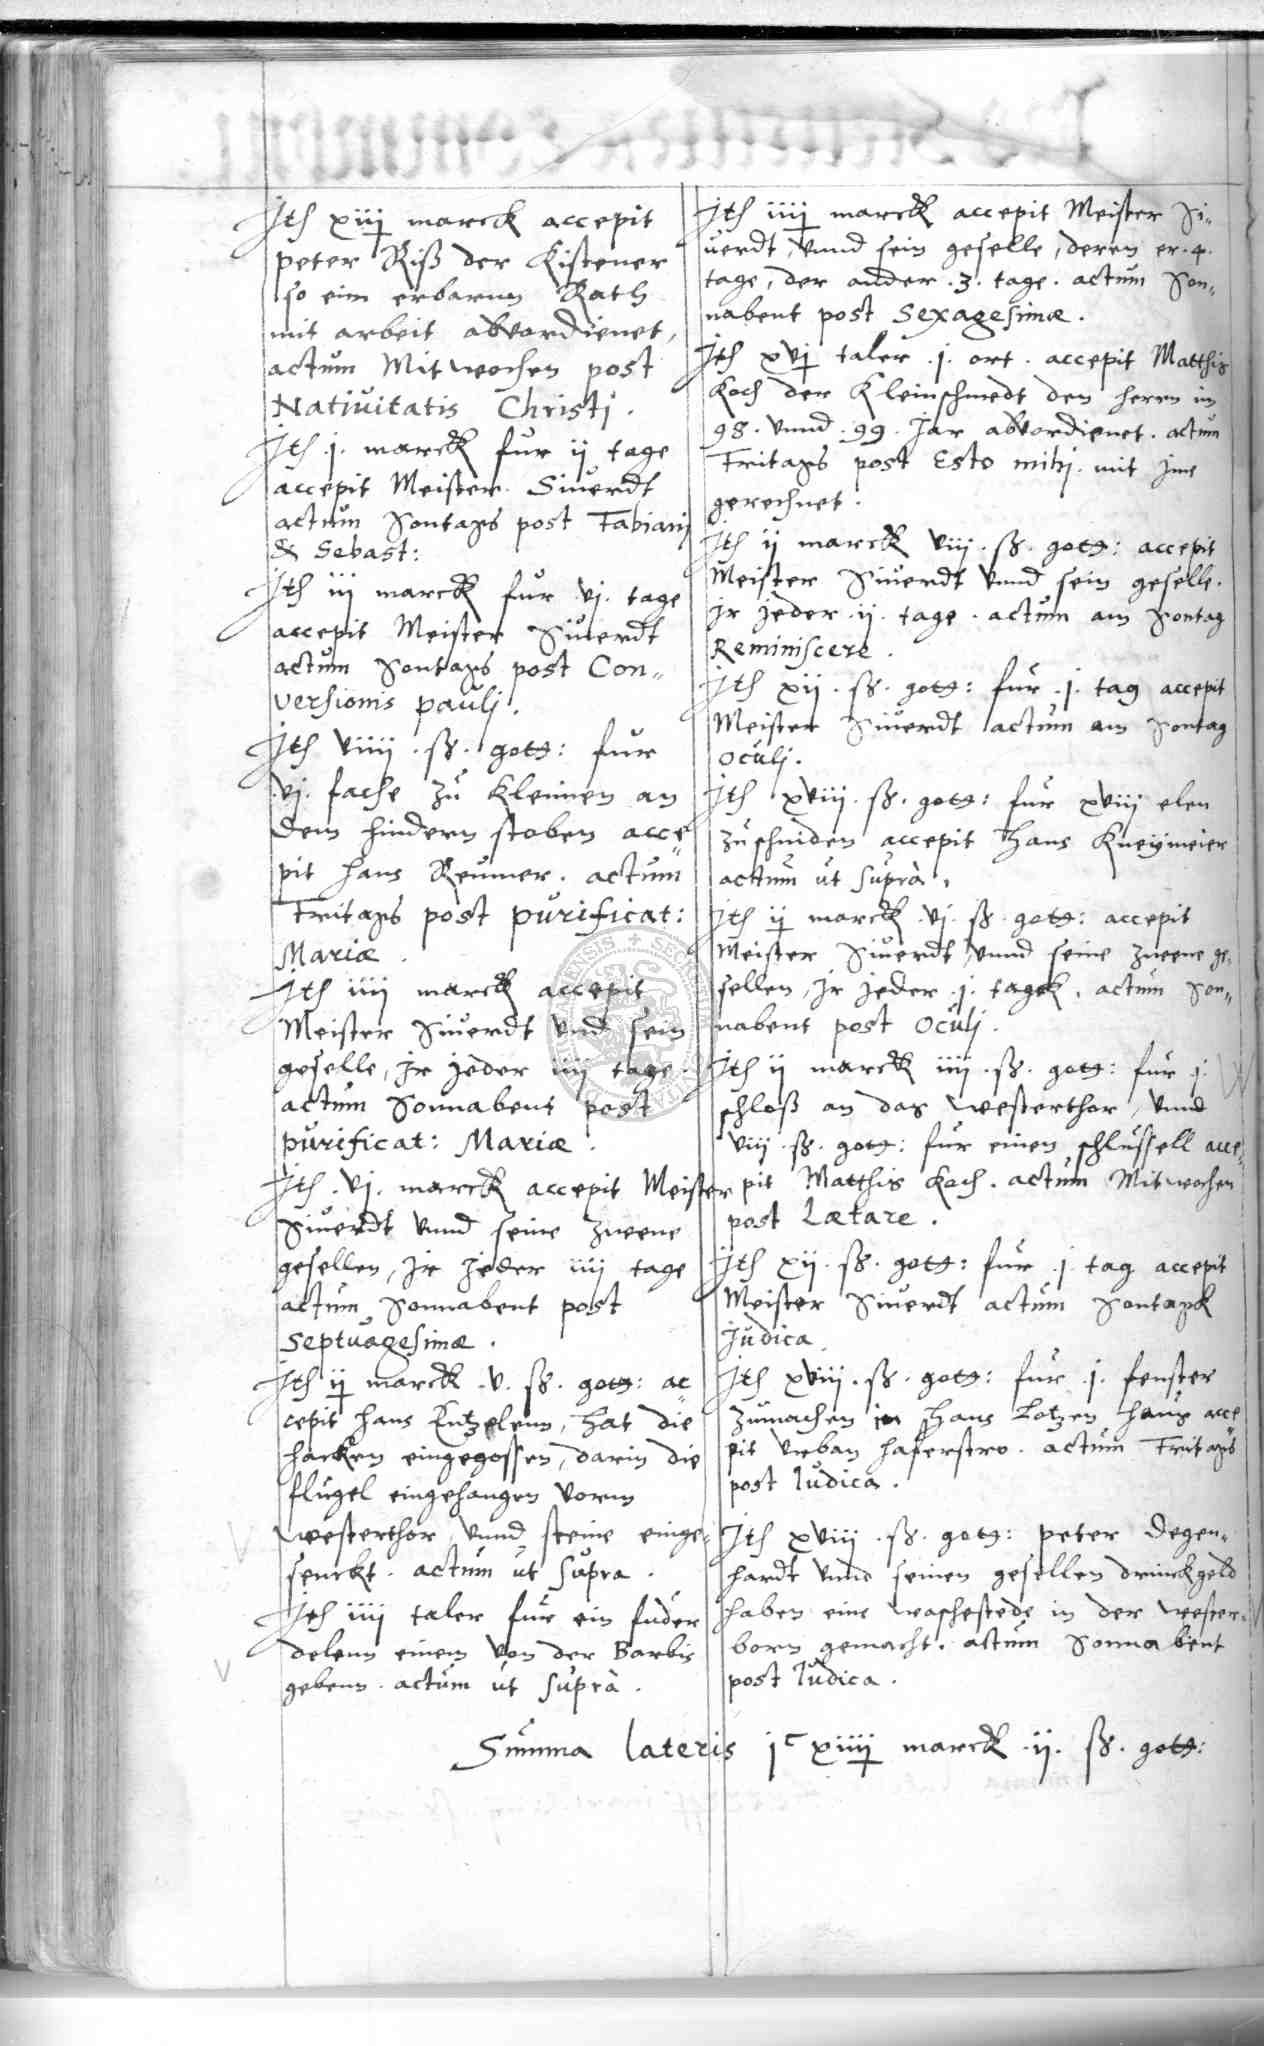 Ith xiiij marck accepit
peter Riß der Kistener
so eim erbarnn Rath
mit arbeit abvordienet,
actum Mitwochen post
Nativitatis Christj.
Ith .j. marck fur ij tage
accepit Meister Siuerdt
actum Sontags post Fabianj
& Sebast:
Ith iij marck fur vj. tage
accepit Meister Siuerdt
actum Sontags post Con„
versionis paulj.
Ith viiij . ß. gott: fur
vj. fache zu kleimen an
dem hindern stoben acce„
pit hans Reumer. actum
Fritags post purificat:
Mariæ.
Ith iiij marck accepit
Meister Siuerdt vnd sein
geselle, Jr jeder iiij tage.
actum Sonnabent post
purificat: Mariæ.
Ith .vj. marck accepit Meister
Siuerdt vnnd seine zweene
gesellen, Jr jeder iiij tage
actum Sonnabent post
Septuagesimæ.
Ith ij marck .v. ß. gott: ac„
cepit hans Entzelenn, hat die
harken eingegossen, darin die
flugel eingehangen vorm
westerthor, vnnd steine einge„
senckt. actum ut supra.
Ith iiij taler fur ein fuder
delenn einem von der Barbis
gebenn. actum ut suprà.
Ith iiij marck accepit Meister Si„
uerdt, vnnd sein geselle, deren er .4.
tage, der ander .3. tage. actum Son„
nabent post Sexagesimæ.
Ith xvj taler .j. ort. accepit Matthis
Koch der Kleinschmedt den herrn im
98. vnnd .99. Jar abvordienet. actum
Fritags post Esto mihj. mit Jme
gerechnet.
Ith ij marck viij. ß. gott: accepit
Meister Siuerdt vnnd sein geselle.
Jr jeder .ij. tage. actum am Sontag
Reminiscere.
Ith xij. ß. gott: fur .j. tag accepit
Meister Siuerdt actum am Sontag
Oculj.
Ith xviij. ß. gott: fur xviij elen
zuschniden accepit Hans Kneymeier
actum ut suprà.
Ith ij marck .vj. ß. gott: accepit
Meister Siuerdt, vnnd seine zweene ge„
sellen, Jr jeder .j. tagek, actum Son„
nabent post Oculj.
Ith ij marck iiij. ß. gott: fur .j.
schloß an das westerthor, vnnd
viij. ß. gott: fur einen schlussell acce„
pit Matthis Koch. actum Mitwochen
post Lætare.
Ith xij. ß. gott: fur .j. tag accepit
Meister Siuerdt actum Sontagk
Judica
Ith xviij. ß. gott: fur .j. fenster
zumachen in Hans Lotzen haus acce„
pit vrban haferstro. actum Fritags
post Judica.
Ith xviij. ß. gott: peter Degen„
hardt vnnd seinen gesellen drinckgeld
haben eine waschestede in der wester„
born gemacht. actum Sonnabent
post Judica.
Summa lateris jc xiiij marck .ij. ß. gott: